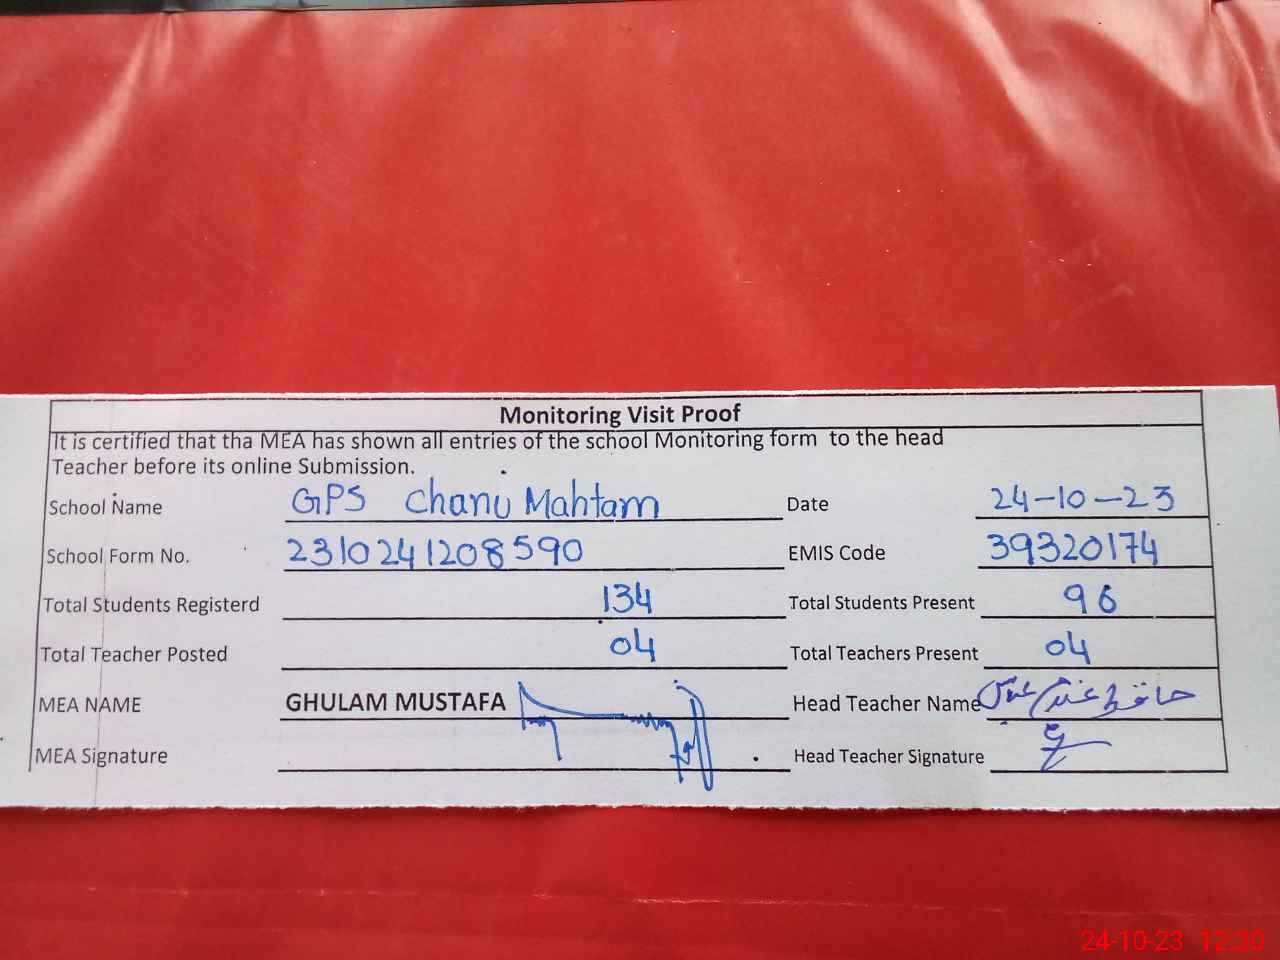 Monitoring Visit Proof
It is certified that tha MEA has shown all entries of the school Monitoring form to the head
Teacher before its online Submission.
School Name GPS Chanu Mahtam Date 24-10-23
School Form No. 2310241208590 EMIS Code 39320174
Total Students Registerd 134 Total Students Present 96
Total Teacher Posted 04 Total Teachers Present 04
MEA NAME GHULAM MUSTAFA Head Teacher Name حافظ
MEA Signature Head Teacher Signature
24-10-23 12:30